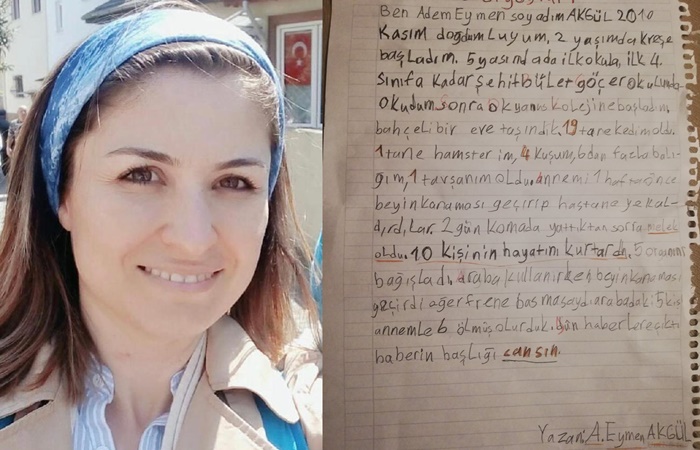 Ben Adem Eymen soyadım AKGÜL 2010
Kasım doğumluyum, 2 yaşımda kreşe
başladım. 5 yaşında da ilkokula, ilk 4.
sınıfa kadar şehit Bület göçer okulunda
okudum sonra okyanus kolejine başladım
bahçeli bir eve taşındık. 19 tane kedim oldu.
1 tane hamsterim, 4 kuşum, 6 dan fazla balı-
ğım, 1 tavşanım oldu. annemi 1 hafta önce
beyin kanaması geçirip hastane ye kal-
dırdılar. 2 gün komada yattıktan sorra melek
oldu. 10 kişinin hayatını kurtardı. 5 organını
bağışladı, araba kullanırken beyin kanaması
geçirdi ağer frene basmasaydı arabadaki 5 kişi
annemle 6 ölmüş olurduk. gün haberlere çıktı
haberin başlığı cansın.
Yazan: A. Eymen AKGÜL